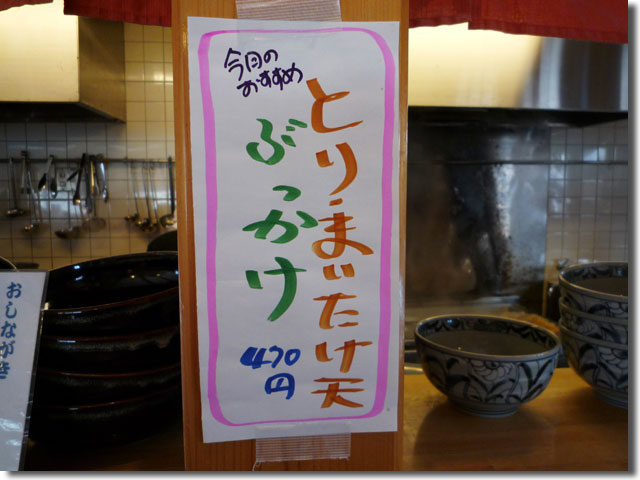 今月の
おすすめ
とり・まいたけ天
ぶっかけ
470円
おしながき